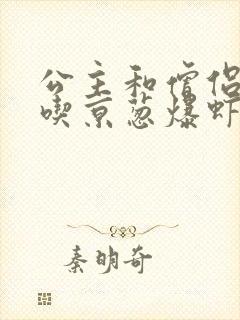 公主和僧侣
喫京葱爆虾
秦明奇